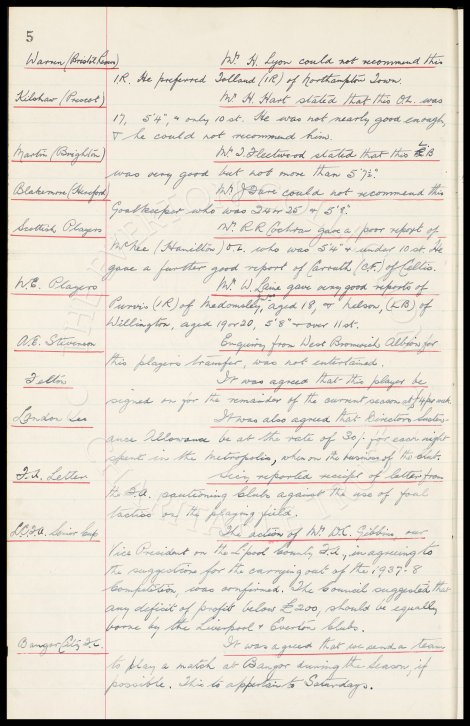 5
Warren (Bristol Rovers) Mr. H. Lyon could not recommend this
IR. He preferred Tolland (IR) of Northampton Town.
Kilshaw (Prescot) Mr. H. Hart stated that this O.L. was
17, 5'4", & only 10 st. He was not nearly good enough,
& he could not recommend him.
Martin (Brighton) Mr. J. Fleetwood stated that this LB
was very good but not more than 5'7½".
Blakemore (Hereford) Mr. J. Gore could not recommend this
Goalkeeper who was 24 or 25 & 5'8".
Scottish Players Mr. R.R. Cochran gave a poor report of
McKee (Hamilton) O.L. who was 5'4" & under 10 st. He
gave a further good report of Carruth (C.F.) of Celtic.
N.E. Players Mr. W. Lane gave very good reports of
Purvis (IR) of Medomsley, aged 18, & Nelson, (LB) of
Willington, aged 19 or 20, 5'8" & over 11 st.
A.E. Stevenson Enquiry from West Bromwich Albion for
this players transfer, was not entertained.
Felton It was agreed that this player be
signed on for the remainder of the current season at £4 per week.
London It was also agreed that Directors
Allowance be at the rate of 30/- for each night
spent in the Metropolis, when on the business of the Club.
F.A. Letter Secy. reported receipt of letter from
the F.A. cautioning Clubs against the use of foul
tactics on the playing field.
L.C.F.A. Senior Cup The action of Mr. W.C. Gibbins, our
Vice President on the L'pool County F.A., in agreeing to
the suggestions for the carrying out of the 1937-8
Competition, was confirmed. The Council suggested that
any deficit of profit below £200, should be equally
borne by the Liverpool & Everton Clubs.
Bangor City F.C. It was agreed that we send a team
to play a match at Bangor during the season, if
possible. This to appertain to Saturdays.